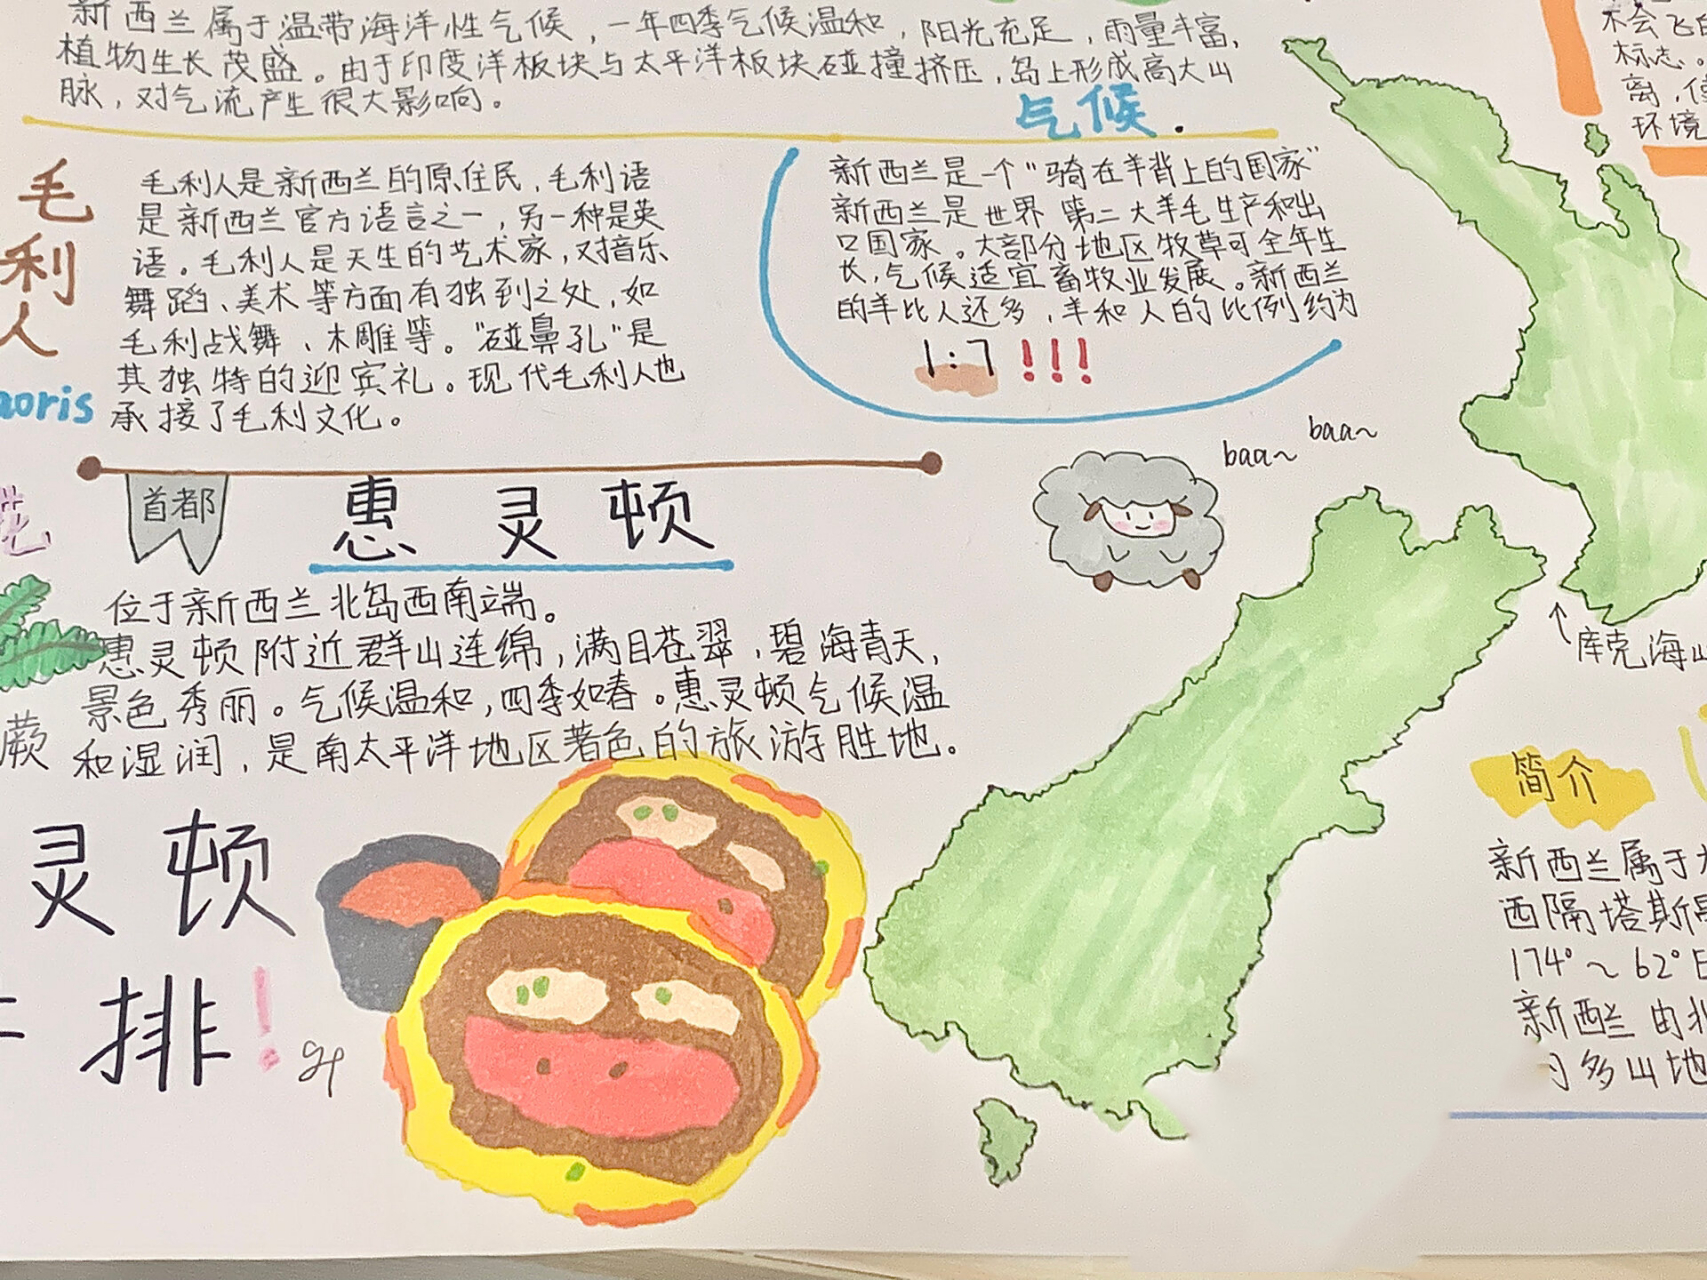 新西兰属于温带海洋性气候，一年四季气候温和，阳光充足，雨量丰富，
植物生长茂盛。由于印度洋板块与太平洋板块碰撞挤压，岛上形成高大山
脉，对气流产生很大影响。
气候.
毛利人
aoris
毛利人是新西兰的原住民，毛利语
是新西兰官方语言之一，另一种是英
语。毛利人是天生的艺术家，对音乐
舞蹈、美术等方面有独到之处，如
毛利战舞、木雕等。"碰鼻孔"是
其独特的迎宾礼。现代毛利人也
承接了毛利文化。
新西兰是一个"骑在羊背上的国家"
新西兰是世界第二大羊毛生产和出
口国家。大部分地区牧草可全年生
长，气候适宜畜牧业发展。新西兰
的羊比人还多，羊和人的比例约为
1:7!!!
baa~
baa~
首都
惠灵顿
位于新西兰北岛西南端。
惠灵顿附近群山连绵，满目苍翠，碧海青天，
景色秀丽。气候温和，四季如春。惠灵顿气候温
和湿润，是南太平洋地区著名的旅游胜地。
花
蕨
灵顿
排!
木会飞
标志。
离，
环境
库克海
简介
新西兰属于
西隔塔斯
174°~62°
新西兰由北
多山地